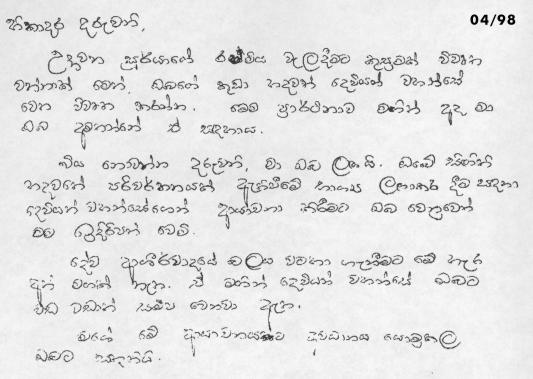 04/98
හිතාදර දරුවනි,
උදාවන සූර්යාගේ රශ්මිය වැලඳීමට කුසුමක් විවෘත
වන්නාක් මෙන්, ඔබගේ කුඩා හදවත් දෙවියන් වහන්සේ
වෙත විවෘත කරන්න. මෙම ප්‍රාර්ථනාව මගින් අද මා
ඔබ අමතන්නේ ඒ සඳහාය.
බිය නොවන්න දරුවනි, මා ඔබ ලඟයි. ඔබේ සිතින්
හදවතේ පරිවර්තනයක් ඇතිවීමේ භාග්‍ය ලබාදීම සඳහා
දෙවියන් වහන්සේගෙන් ආයාචනා කිරීමට ඔබ වෙනුවෙන්
මම ඉදිරිපත් වෙමි.
දේව ආශීර්වාදයේ ඵලය වටහා ගැනීමට මේ හැර
අන් මගක් නැත. ඒ මගින් දෙවියන් වහන්සේ ඔබට
වඩ වඩාත් සමීප වෙනවා ඇත.
මගේ මේ ආයාචනයකට අවධානය යොමුකල
ඔබට ස්තූතියි.